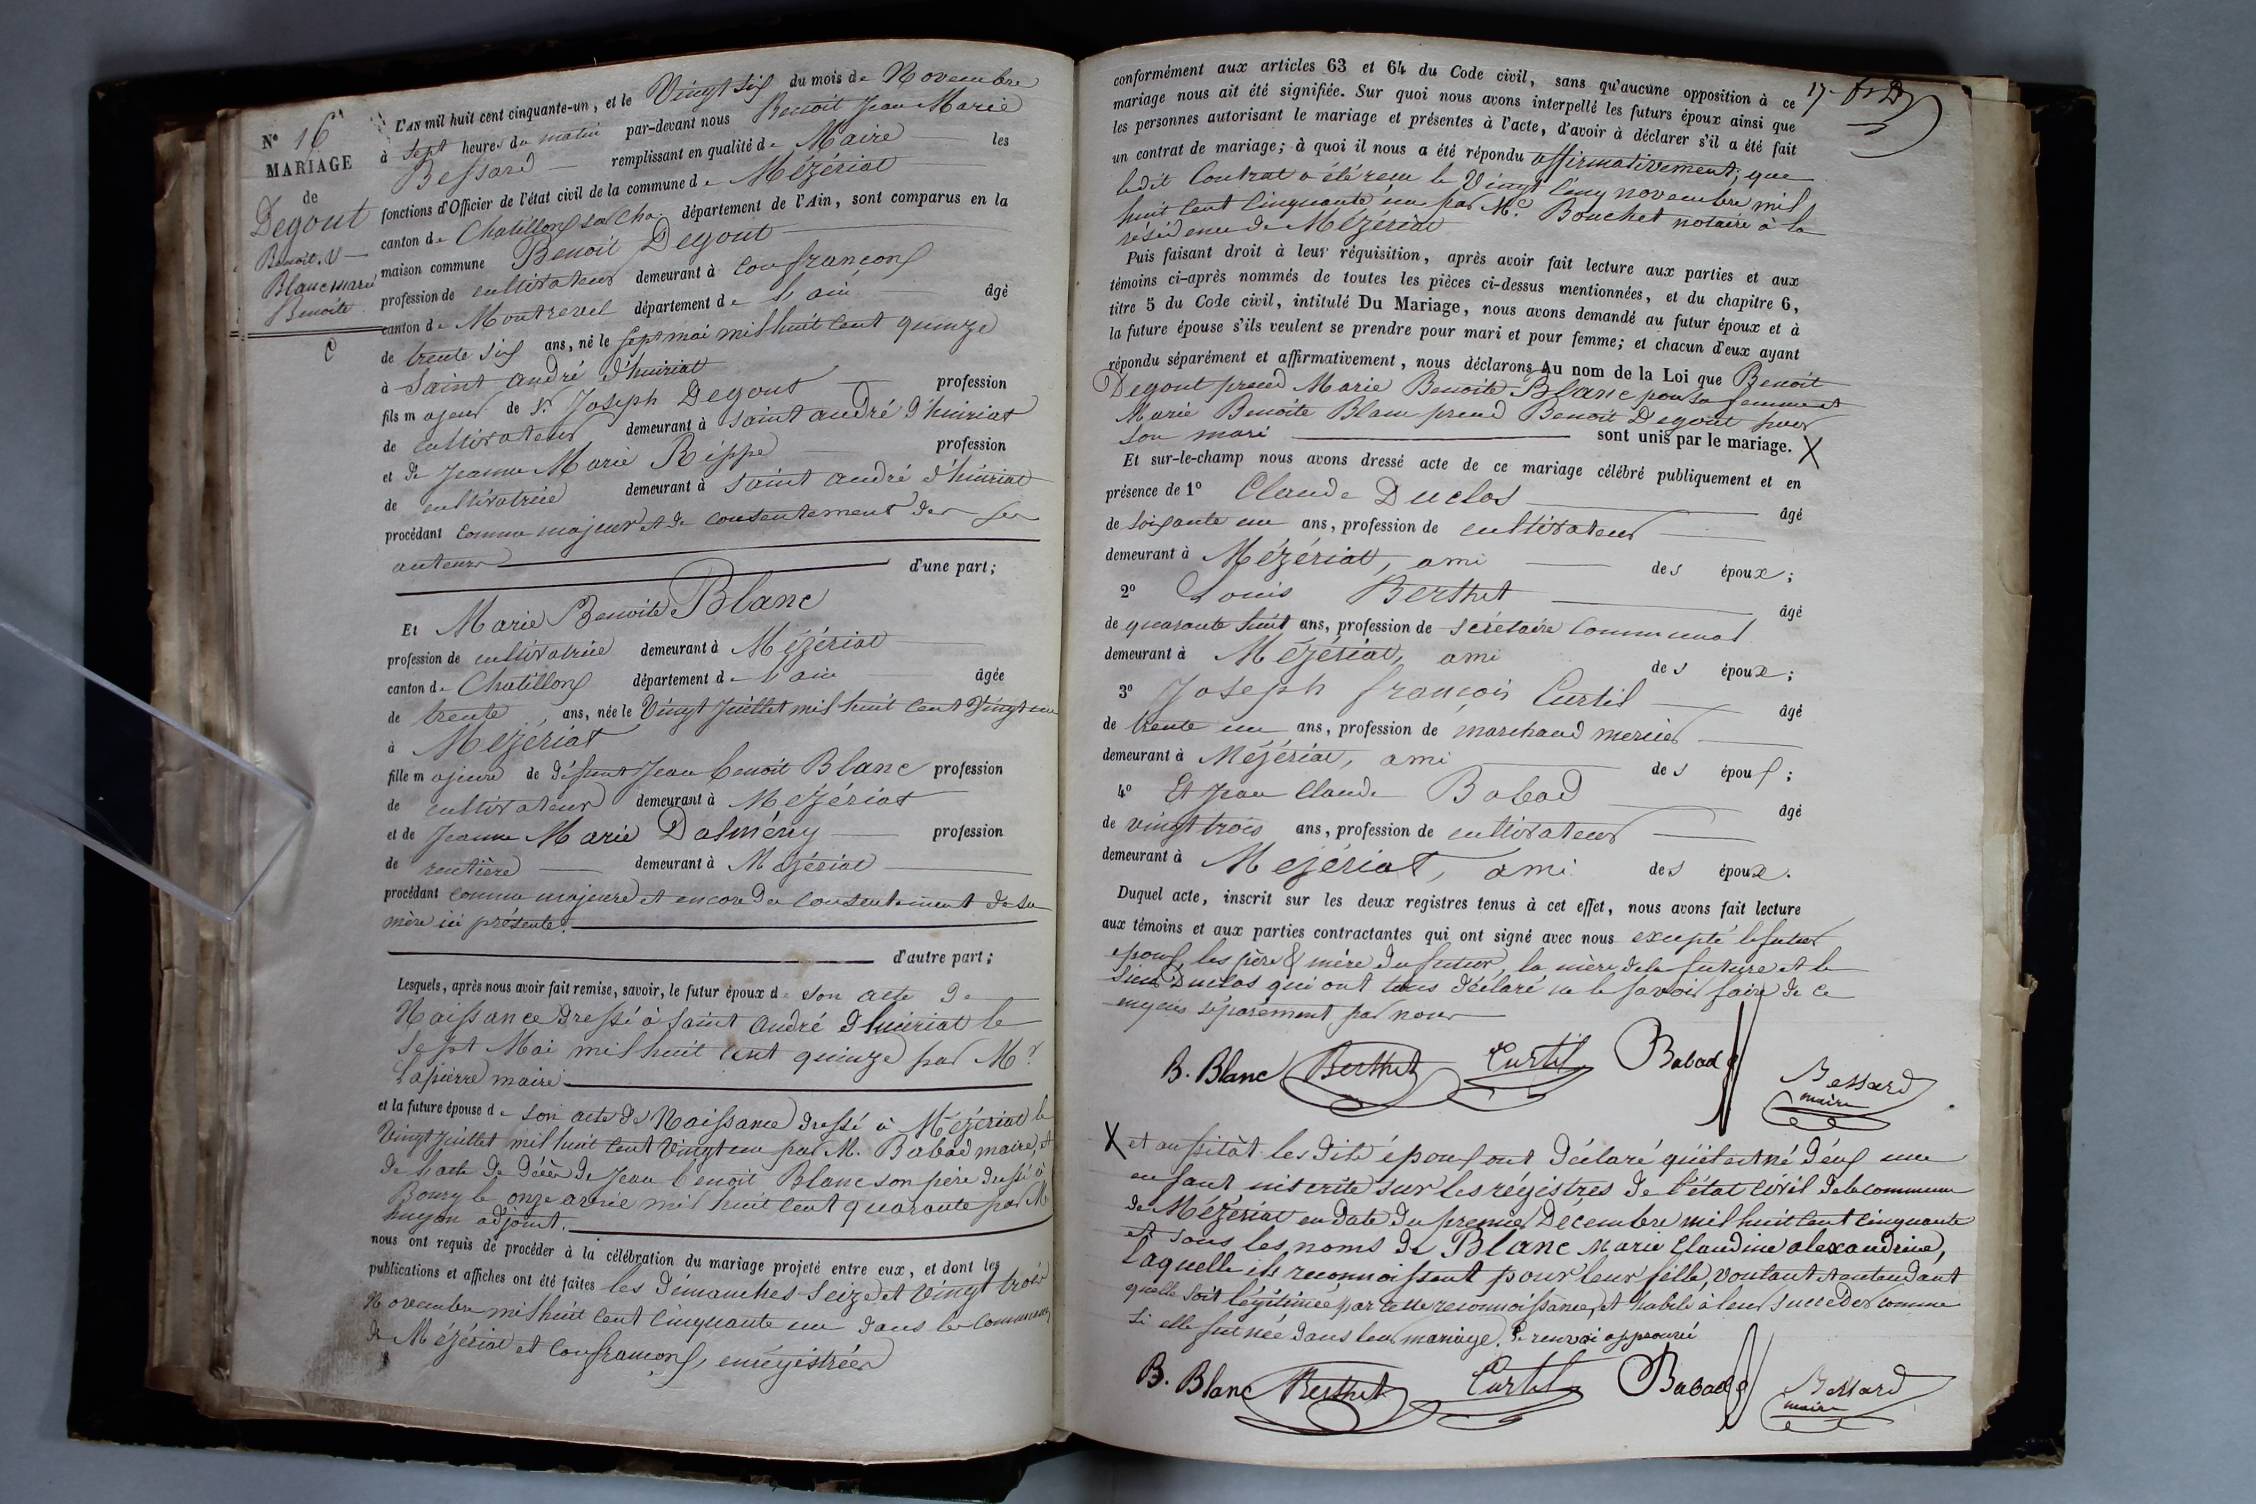 N° 16
MARIAGE
de
Degout
Benoit. &
Blanc marie
Benoite
C
L'AN mil huit cent cinquante-un, et le Vingt six du mois de Novembre
à sept heures du matin par-devant nous Benoit Jean Marie
Bessard remplissant en qualité de Maire les
fonctions d'Officier de l'état civil de la commune de Mézériat
canton de Chatillon sur Cha. département de l'Ain, sont comparus en la
maison commune Benoit Degout
profession de cultivateur demeurant à Confrançon
canton de Montrevel département de l'ain âgé
de trente six ans, né le sept mai mil huit cent quinze
à Saint andré d'huiriat
fils majeur de Sr. Joseph Degout profession
de cultivateur demeurant à saint andré d'huiriat
et de Jeanne Marie Rippe profession
de cultivatrice demeurant à saint andré d'huiriat
procédant comme majeur et du consentement de ses
auteurs d'une part;
Et Marie Benoite Blanc
profession de cultivatrice demeurant à Mézériat
canton de Chatillon département de l'ain âgée
de trente ans, née le Vingt Juillet mil huit cent Vingt un
à Mézériat
fille majeure de défunt Jean benoit Blanc profession
de cultivateur demeurant à Mézériat
et de Jeanne Marie Dalmény profession
de rentière demeurant à Mézériat
procédant comme majeure et encore du consentement de sa
mère ici présente.
d'autre part;
Lesquels, après nous avoir fait remise, savoir, le futur époux de son acte de
Naissance dressé à saint andré d'huiriat le
sept Mai mil huit cent quinze par Mr.
Lapierre maire
et la future épouse de son acte de Naissance dressé à Mézériat le
Vingt Juillet mil huit cent Vingt un par M. Babad maire, et
de l'acte de décès de Jean benoit Blanc son père dressé à
Bourg le onze avril mil huit cent quarante par M.
adjoint.
nous ont requis de procéder à la célébration du mariage projeté entre eux, et dont les
publications et affiches ont été faites les dimanches seize et vingt trois
Novembre mil huit cent cinquante un dans les communes
de Mézériat et Confrançon, enregistrées
17
conformément aux articles 63 et 64 du Code civil, sans qu'aucune opposition à ce
mariage nous ait été signifiée. Sur quoi nous avons interpellé les futurs époux ainsi que
les personnes autorisant le mariage et présentes à l'acte, d'avoir à déclarer s'il a été fait
un contrat de mariage; à quoi il nous a été répondu affirmativement, que
ledit Contrat a été reçu le Vingt Cinq novembre mil
huit cent Cinquante un par Me. Bouchet notaire à la
résidence de Mézériat
Puis faisant droit à leur réquisition, après avoir fait lecture aux parties et aux
témoins ci-après nommés de toutes les pièces ci-dessus mentionnées, et du chapitre 6,
titre 5 du Code civil, intitulé Du Mariage, nous avons demandé au futur époux et à
la future épouse s'ils veulent se prendre pour mari et pour femme; et chacun d'eux ayant
répondu séparément et affirmativement, nous déclarons Au nom de la Loi que Benoit
Degout prend Marie Benoite Blanc pour sa femme et
Marie Benoite Blanc prend Benoit Degout pour
son mari sont unis par le mariage. X
Et sur-le-champ nous avons dressé acte de ce mariage célébré publiquement et en
présence de 1° Claude Duclos âgé
de soixante un ans, profession de cultivateur
demeurant à Mézériat, ami des époux;
2° Louis Berthet âgé
de quarante huit ans, profession de secrétaire communal
demeurant à Mézériat, ami des époux;
3° Joseph françois Curtil âgé
de trente un ans, profession de marchand mercier
demeurant à Mézériat, ami des époux;
4° Et Jean Claude Babad âgé
de vingt trois ans, profession de cultivateur
demeurant à Mézériat, ami des époux.
Duquel acte, inscrit sur les deux registres tenus à cet effet, nous avons fait lecture
aux témoins et aux parties contractantes qui ont signé avec nous excepté le futur
époux, les père & mère du futur, la mère de la future et le
sieur Duclos qui ont tous déclaré ne le savoir faire de ce
enquis séparément par nous
B. Blanc Berthet Curtil Babad Bessard
maire
X et aussitôt les dits époux ont déclaré qu'il est né d'eux une
enfant inscrite sur les régistres de l'état civil de la commune
de Mézériat en date du premier Décembre mil huit cent cinquante
et sous les noms de Blanc Marie Claudine alexandrine,
laquelle ils reconnoissent pour leur fille, voulant et entendant
quelle soit légitimée par cette reconnoissance, et habile à leur succéder comme
si elle fut née dans leur mariage. Le renvoi approuvé
B. Blanc Berthet Curtil Babad Bessard
maire